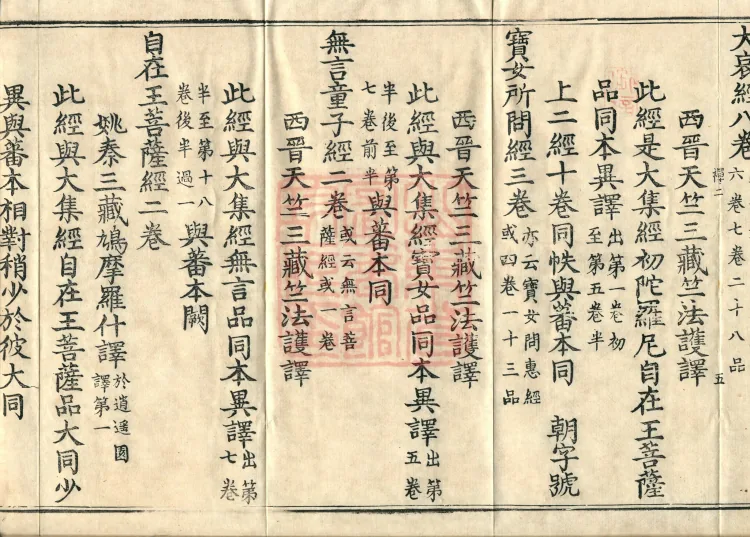 大哀經八卷 六卷七卷二十八品
西晉天竺三藏竺法護譯
此經是大集經初陀羅尼自在王菩薩
品同本異譯 出第一卷初至第五卷半
上二經十卷同帙與蕃本同 朝字號
寶女所問經三卷 亦云寶女問惠經或四卷一十三品
西晉天竺三藏竺法護譯
此經與大集經寶女品同本異譯 出第五卷
半後至第七卷前半 與蕃本同
無言童子經二卷 或云無言菩薩經或一卷
西晉天竺三藏竺法護譯
此經與大集經無言品同本異譯 出第七卷
半至第十八卷後半過一 與蕃本闕
自在王菩薩經二卷
姚秦三藏鳩摩羅什譯 於逍遥園譯第一
此經與大集經自在王菩薩品大同少
異與蕃本相對稍少於彼大同